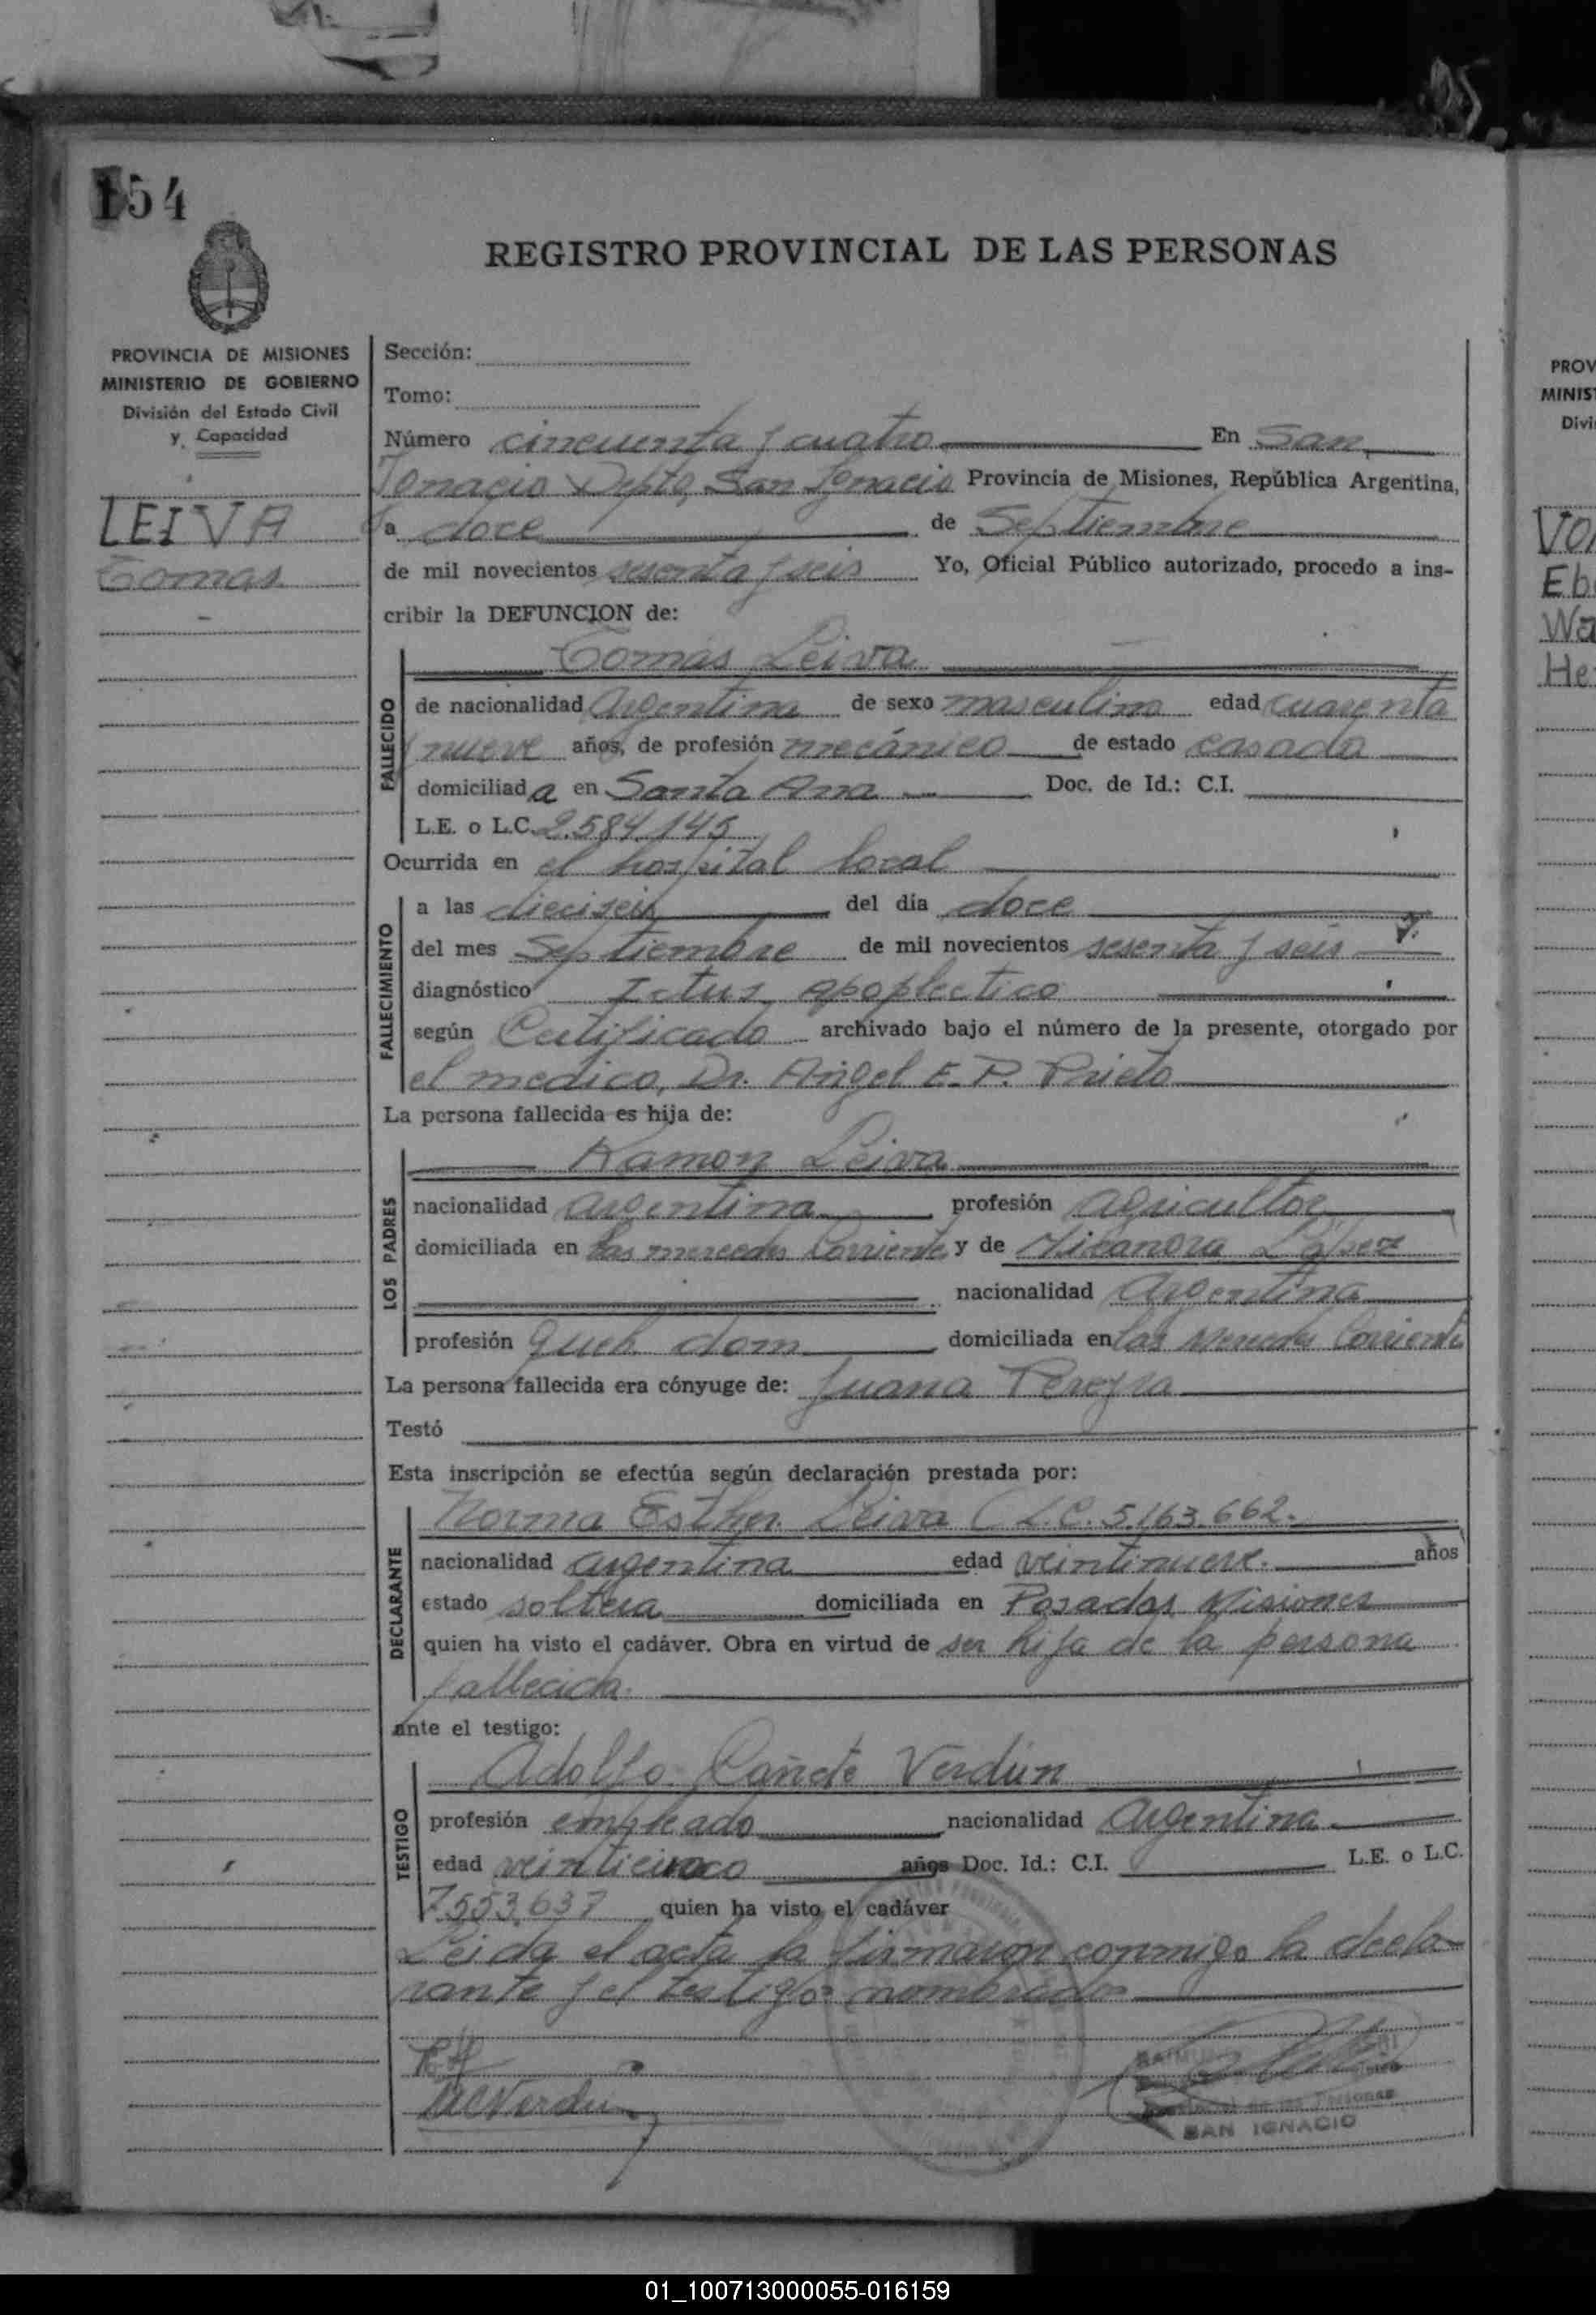 154
REGISTRO PROVINCIAL DE LAS PERSONAS
PROVINCIA DE MISIONES
MINISTERIO DE GOBIERNO
División del Estado Civil
y Capacidad
LEIVA
Tomas
Sección:
Tomo:
Número cincuenta y cuatro En San
Ignacio Depto San Ignacio Provincia de Misiones, República Argentina,
a doce de Septiembre
de mil novecientos sesenta y seis Yo, Oficial Público autorizado, procedo a ins-
cribir la DEFUNCION de:
FALLECIDO
Tomás Leiva
de nacionalidad Argentina de sexo masculino edad cuarenta
y nueve años, de profesión mecánico de estado casada
domiciliada en Santa Ana Doc. de Id.: C.I.
L.E. o L.C. 2.584.145
Ocurrida en el hospital local
FALLECIMIENTO
a las dieciseis del día doce
del mes Septiembre de mil novecientos sesenta y seis
diagnóstico Ictus apoplectico
según Certificado archivado bajo el número de la presente, otorgado por
el medico, Dr. Angel E. P. Prieto
La persona fallecida es hija de:
LOS PADRES
Ramon Leiva
nacionalidad argentina profesión agricultor
domiciliada en Las mercedes Corrientes y de Nicanora López
nacionalidad Argentina
profesión queh. dom. domiciliada en Las Mercedes Corrientes
La persona fallecida era cónyuge de: Juana Pereyra
Testó
Esta inscripción se efectúa según declaración prestada por:
DECLARANTE
Norma Esther Leiva (L.C. 5.163.662.
nacionalidad argentina edad veintinueve. años
estado soltera domiciliada en Posadas Misiones
quien ha visto el cadáver. Obra en virtud de ser hija de la persona
fallecida.
ante el testigo:
TESTIGO
Adolfo Cañete Verdún
profesión empleado nacionalidad Argentina
edad veinticinco años Doc. Id.: C.I. L.E. o L.C.
7.553.637 quien ha visto el cadáver
Leida el acta la firmaron conmigo la decla-
rante y el testigo nombrados
SAN IGNACIO
PROV
MINIST
Divi
Eb
Wa
He
01_100713000055-016159